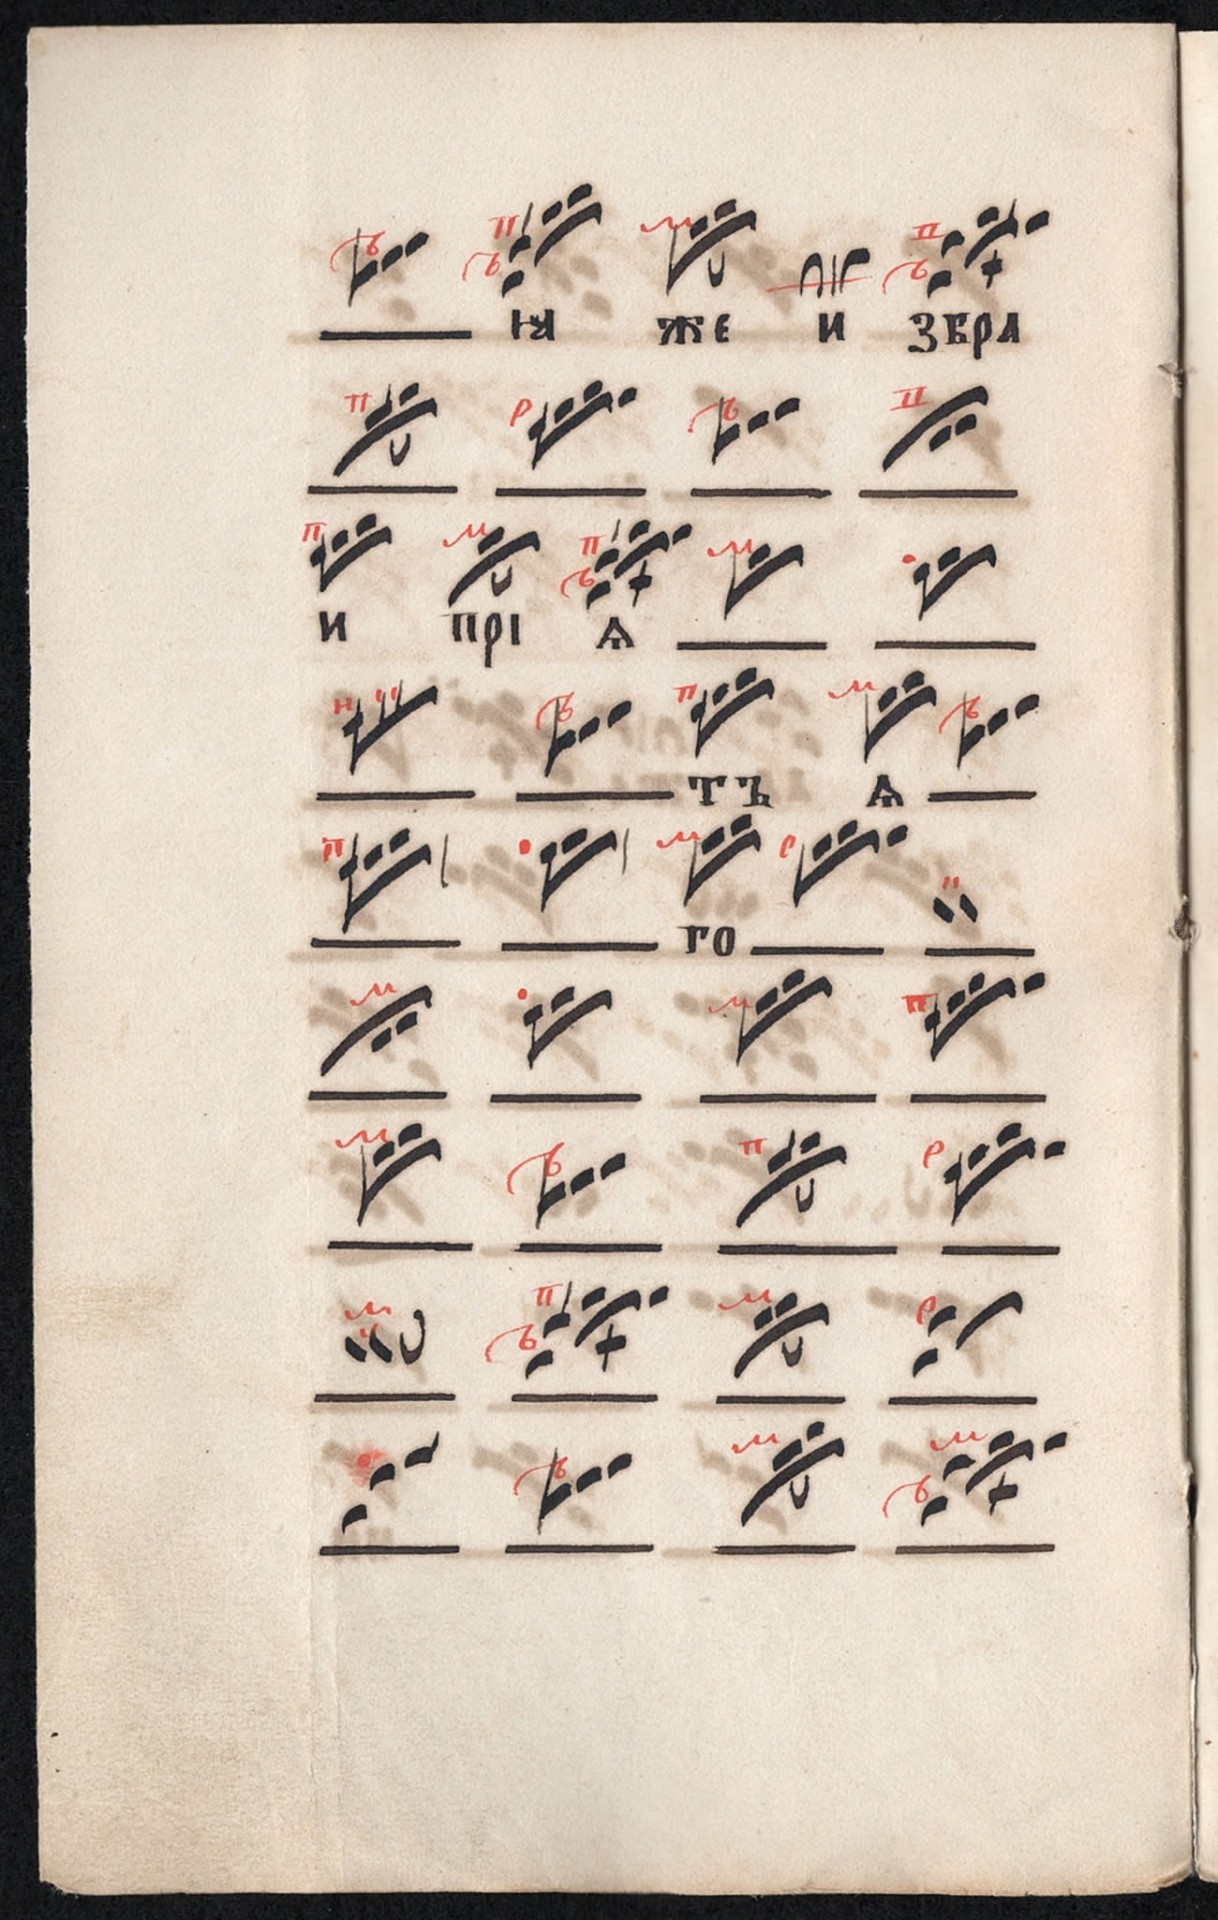 ıа же и збра
и прі ѧ
тъ ѧ
го